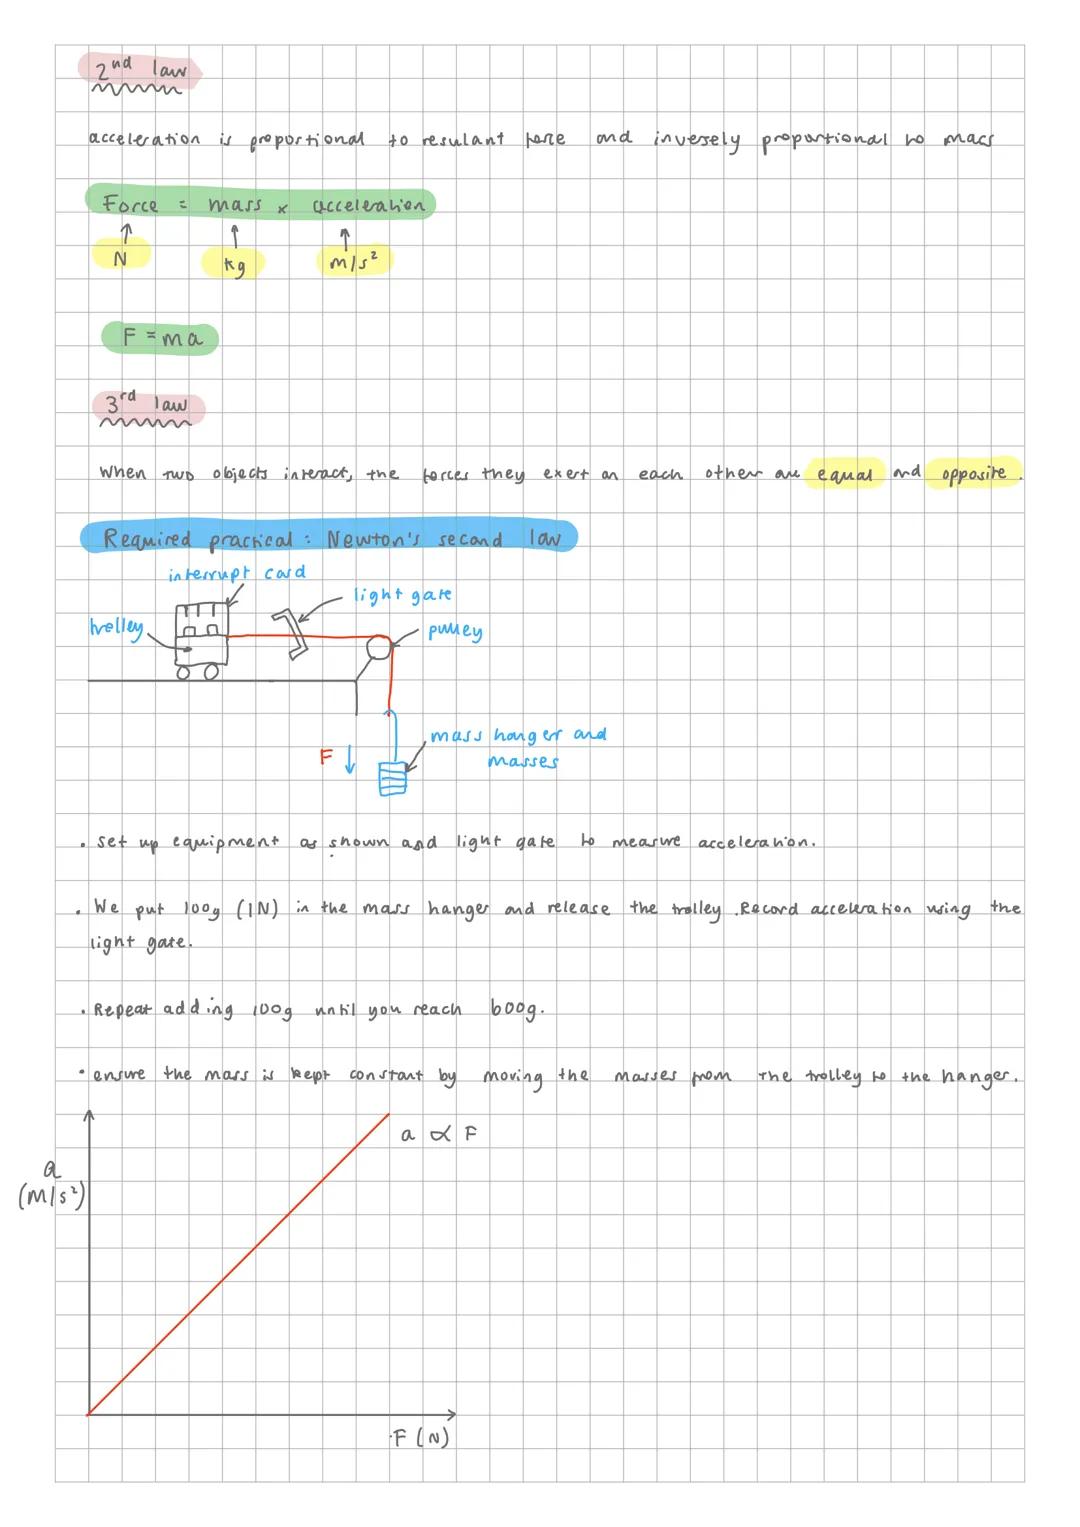 2nd law
acceleration is proportional to resulant force and inversely proportional to mass
Force = mass x acceleration
N kg m/s²
F = ma
3rd law
When two objects interact, the forces they exert on each other are equal and opposite.
Required practical : Newton's second law
interrupt card
light gate
trolley
pulley
mass hanger and
masses
F
. set up equipment as shown and light gate to measure acceleration.
. We put 100g (1N) in the mass hanger and release the trolley. Record acceleration using the
light gate.
. Repeat adding 100g until you reach 600g.
• ensure the mass is kept constant by moving the masses from the trolley to the hanger.
a ∝ F
a
(m/s²)
F (N)